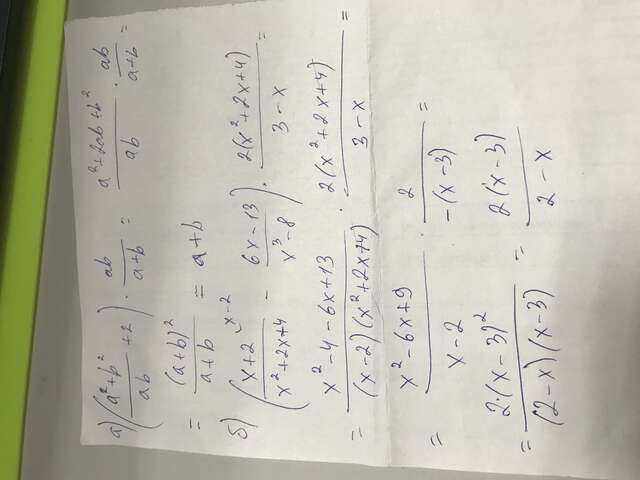 а) ((a²+b²)/(ab) + 2) · (ab)/(a+b) = (a²+2ab+b²)/(ab) · (ab)/(a+b) =
= (a+b)²/(a+b) = a+b
б) ((x+2)/(x²+2x+4) ˣ⁻² − (6x−13)/(x³−8)) · (2(x²+2x+4))/(3−x) =
= (x²−4−6x+13)/((x−2)(x²+2x+4)) · (2(x²+2x+4))/(3−x) =
= (x²−6x+9)/(x−2) · 2/(−(x−3)) =
= (2·(x−3)²)/((2−x)(x−3)) = (2(x−3))/(2−x)